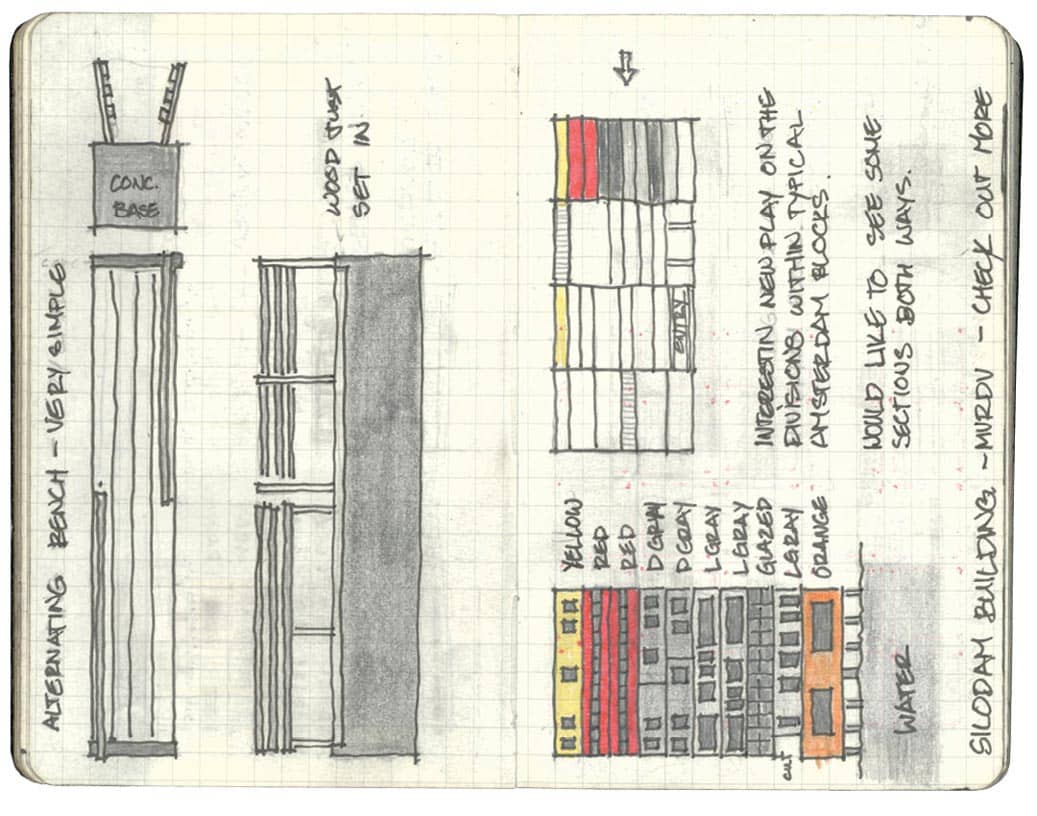 ALTERNATING BENCH - VERY SIMPLE
CONC.
BASE
WOOD JUST
SET IN
YELLOW
RED
RED
D GRAY
D GRAY
L GRAY
L GRAY
GLAZED
L GRAY
ORANGE
CUT
WATER
ENTRY
INTERESTIN NEW PLAY ON THE
DIVISIONS WITHIN TYPICAL
AMSTERDAM BLOCKS.
WOULD LIKE TO SEE SOME
SECTIONS BOTH WAYS.
SILODAM BUILDING. - MVRDV - CHECK OUT MORE